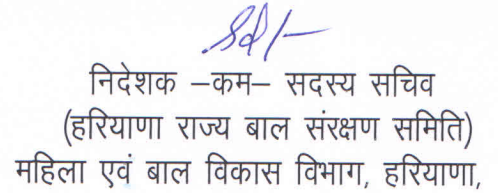 Sd/-
निदेशक –कम– सदस्य सचिव
(हरियाणा राज्य बाल संरक्षण समिति)
महिला एवं बाल विकास विभाग, हरियाणा,